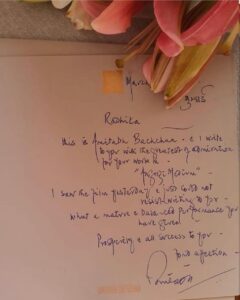 March
मुंबई
Radhika
this is Amitabh Bachchan - & I write
to you with the greatest of admiration
for your work in -
"Angrezi Medium"
I saw the film yesterday & just could not
resist writing to you -
What a mature & balanced performance you
have given
Prosperity & all success to you -
and affection -